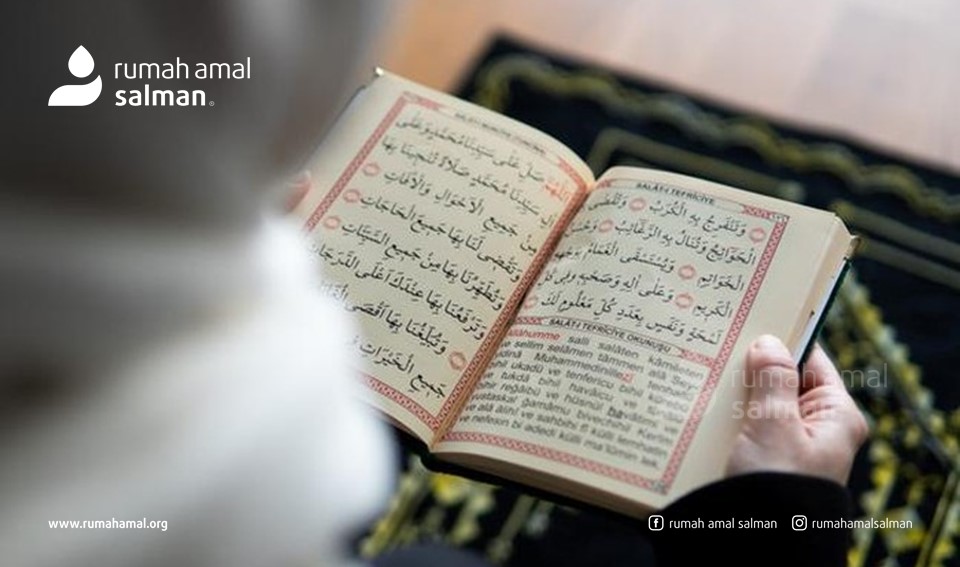 rumah amal
salman
اللهم صَلِّ عَلَى سَيِّدِنَا مُحَمَّدٍ وَعَلَى
آلِ سَيِّدِنَا مُحَمَّدٍ صَلَاةً تُنْجِينَا بِهَا
مِنْ جَمِيعِ الْأَحْوَالِ وَالْآفَاتِ
وَتَقْضِى لَنَا بِهَا جَمِيعَ الْحَاجَاتِ
وَتُطَهِّرُنَا بِهَا مِنْ جَمِيعِ السَّيِّئَاتِ
وَتَرْفَعُنَا بِهَا عِنْدَكَ أَعْلَى الدَّرَجَاتِ
وَتُبَلِّغُنَا بِهَا أَقْصَى
جَمِيعِ الْخَيْرَاتِ
SALÂT-I TEFRİCİYE
وَتَنْفَرِجُ بِهِ الْكُرَبُ
الْحَوَائِجُ وَتُنَالُ بِهِ الرَّغَائِبُ
الْخَوَاتِمِ وَيُسْتَسْقَى الْغَمَامُ
الْكَرِيمِ وَعَلَى آلِهِ وَصَحْبِهِ
لَمْحَةٍ وَنَفَسٍ بِعَدَدِ كُلِّ مَعْلُومٍ لَكَ
SALÂT-I TEFRİCİYE OKUNUŞU
salli salâten kâmileten
ve sellim selâmen tâmmen alâ
Muhammedinillezî
ukadü ve tenfericu bihil
ve tukdâ bihil havâicu ve
reğâibü ve hüsnül havâtimi ve
ğamâmu bivechihil Kerîm
ve alâ âlihî ve sahbihî fî külli lemhatin
ve nefesin bi adedi külli ma'lûmin lek.
rumah amal
salman
www.rumahamal.org
rumah amal salman
rumahamalsalman